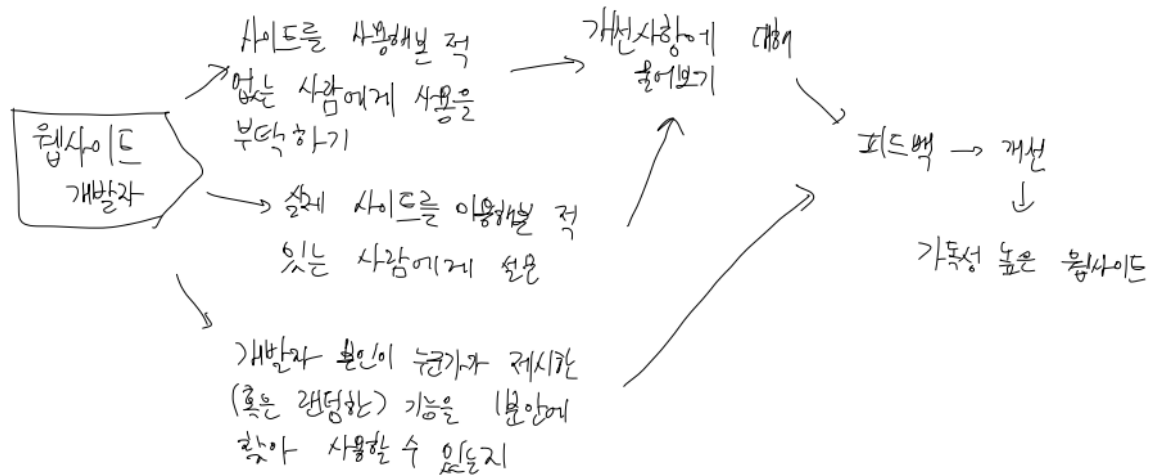 웹사이트
개발자
사이트를 사용해본 적
없는 사람에게 사용을
부탁하기
실제 사이트를 이용해본 적
있는 사람에게 설문
개발자 본인이 누군가가 제시한
(혹은 랜덤한) 기능을 1분안에
찾아 사용할 수 있는지
개선사항에 대해
물어보기
피드백 → 개선
↓
가독성 높은 웹사이트